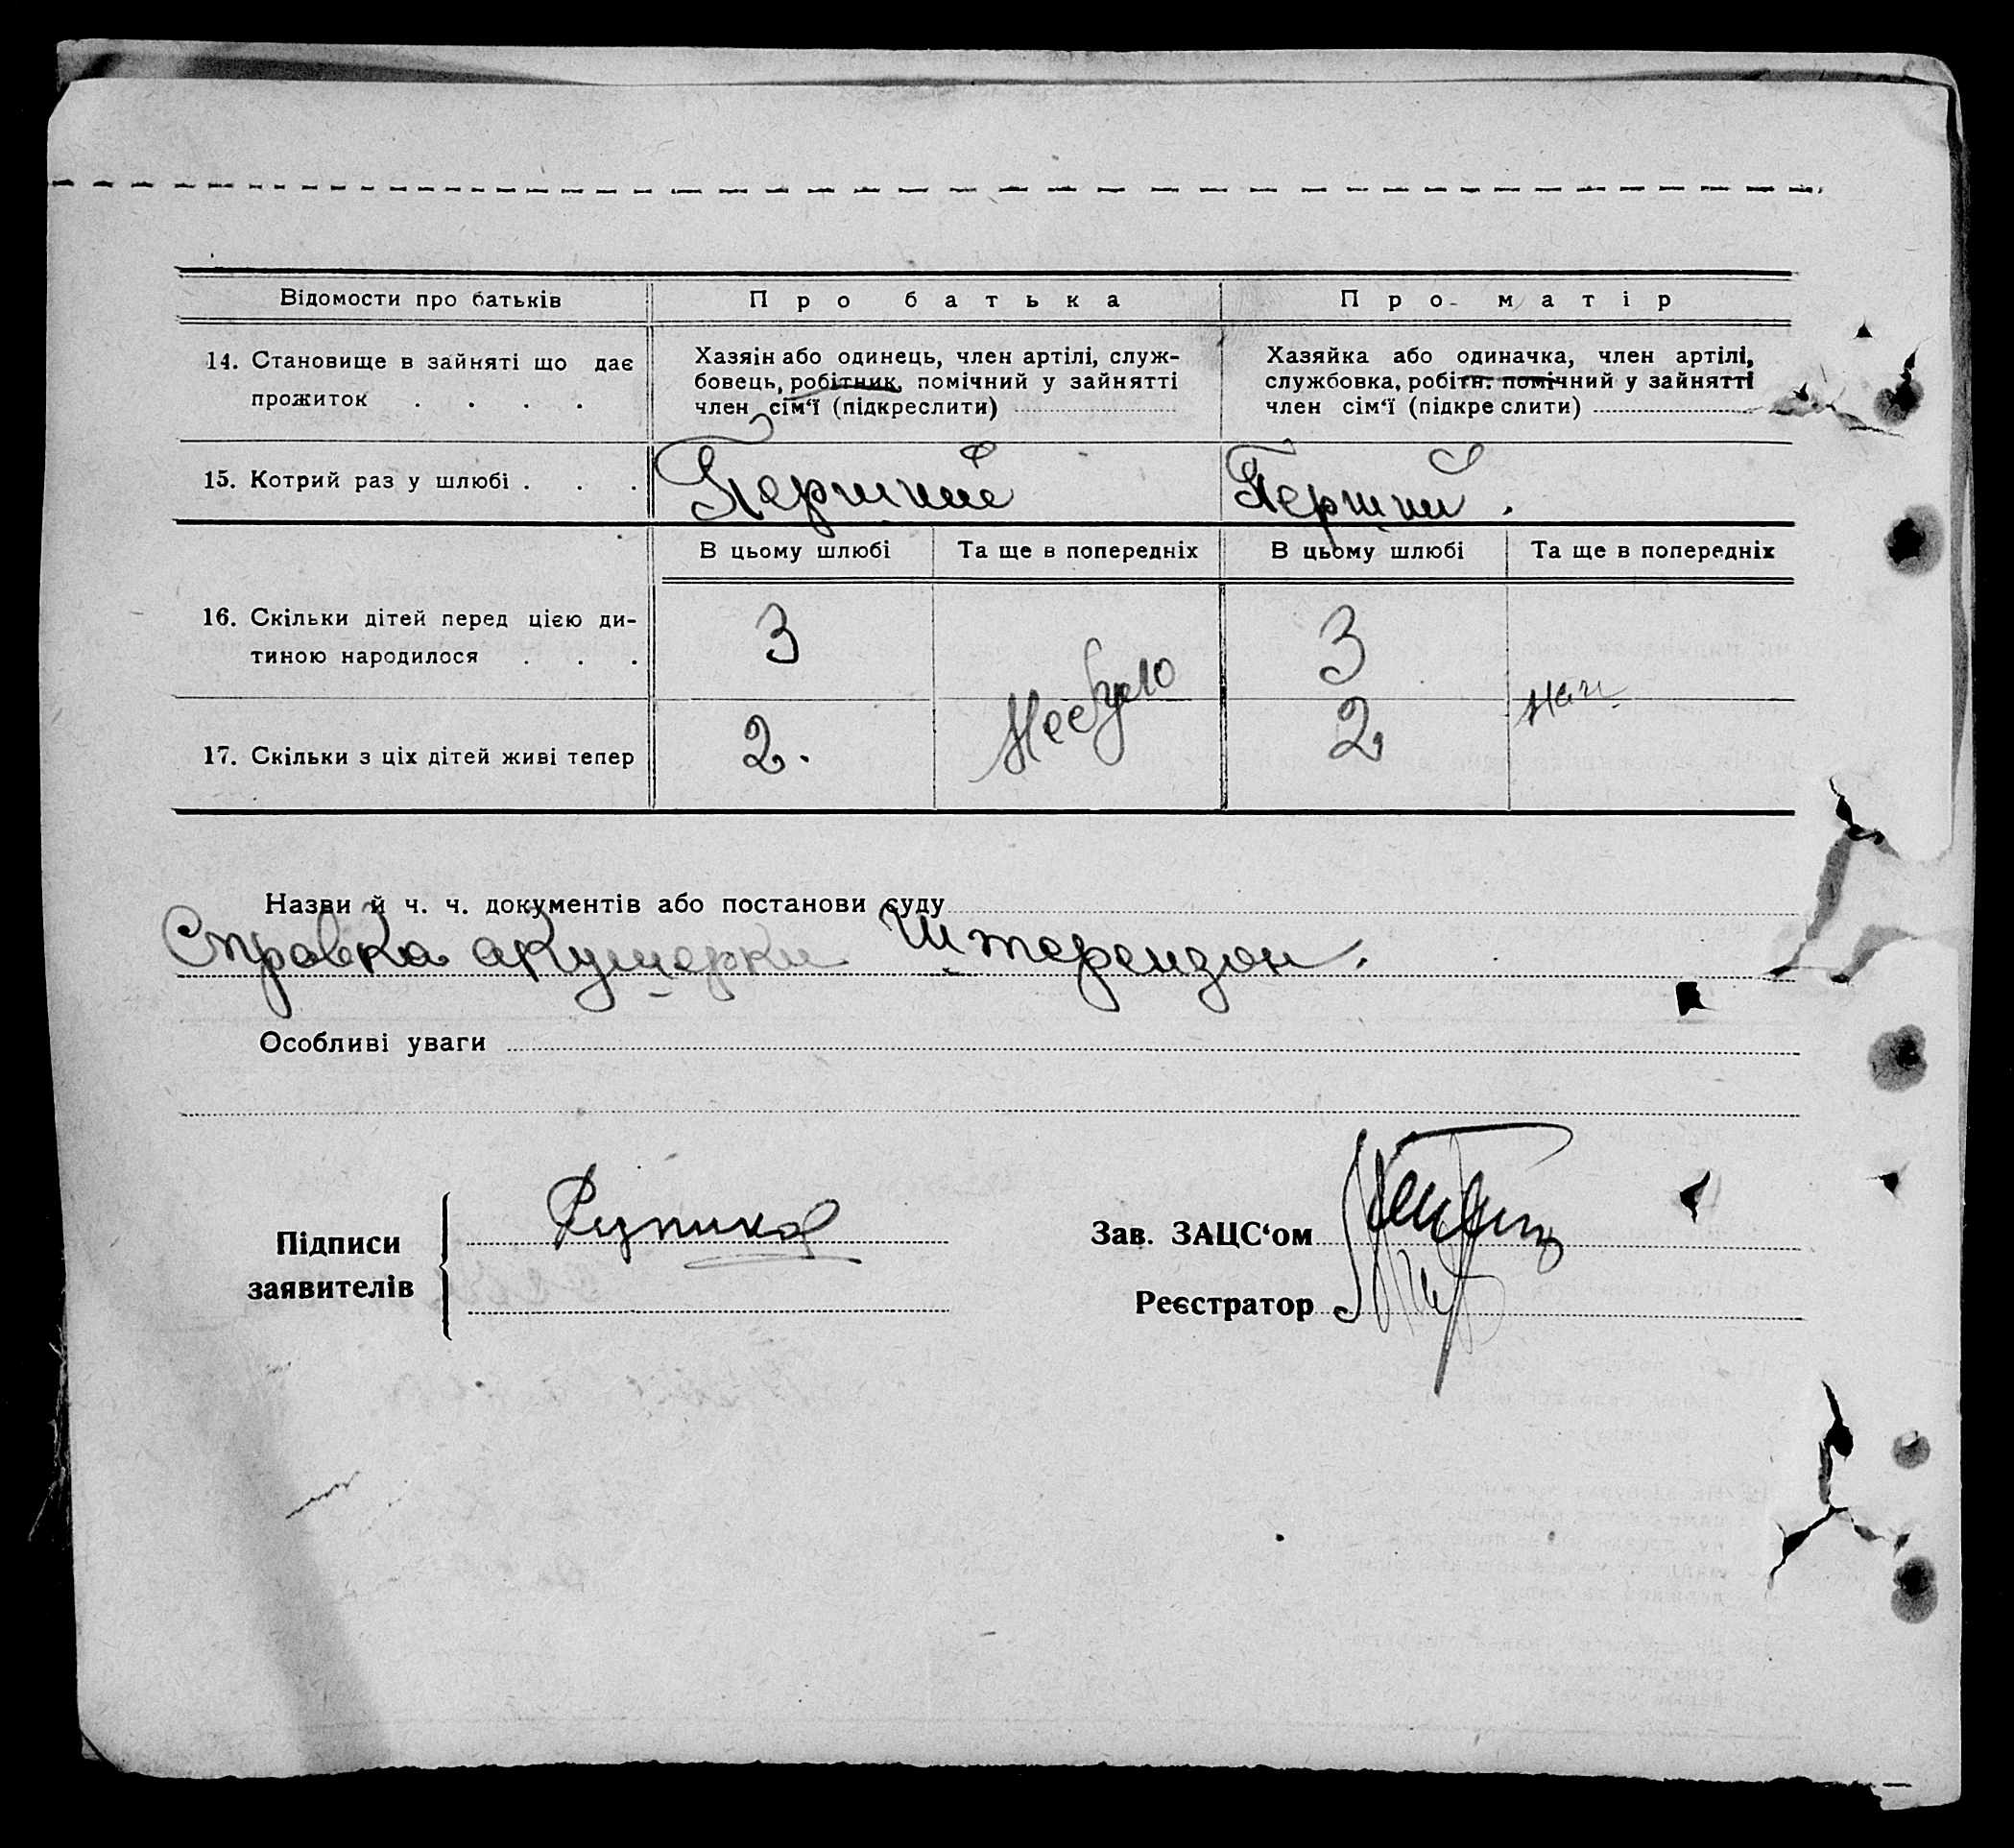 Відомости про батьків
Про батька
Про матір
14. Становище в зайняті що дає
прожиток . . . .
Хазяін або одинець, член артілі, служ-
бовець, робітник, помічний у зайнятті
член сім‘ї (підкреслити)
Хазяйка або одиначка, член артілі,
службовка, робітн. помічний у зайнятті
член сім‘ї (підкреслити)
15. Котрий раз у шлюбі . . .
Перший
Перший.
В цьому шлюбі
Та ще в попередніх
В цьому шлюбі
Та ще в попередніх
16. Скільки дітей перед цією ди-
тиною народилося . . .
3
Небуло
3
17. Скільки з ціх дітей живі тепер
2.
2
Назви й ч. ч. документів або постанови суду
Справка акушерки Штерензон.
Особливі уваги
Підписи
заявителів
Зав. ЗАЦС‘ом
Реєстратор